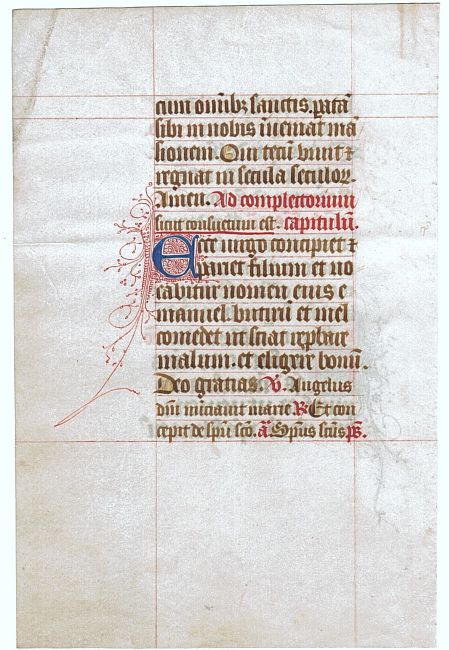 cum omībꝫ sanctis. paratā
sibi in nobis īueniat mā
sionem. Qui tecū viuit ⁊
regnat in secula seculor.
Amen. Ad completorium
sicut consuetum est. capitulū.
Ecce uirgo concipiet ⁊
pariet filium et uo
cabitur nomen eius e
manuel. butirū et mel
comedet ut sciat reprobare
malum. et eligere bonū.
Deo gratias. V̷. Angelus
dn̄i nūciauit marie R̷. Et con
cepit de spū sc̄o. ā. Sp̄us sc̄us ps̄.